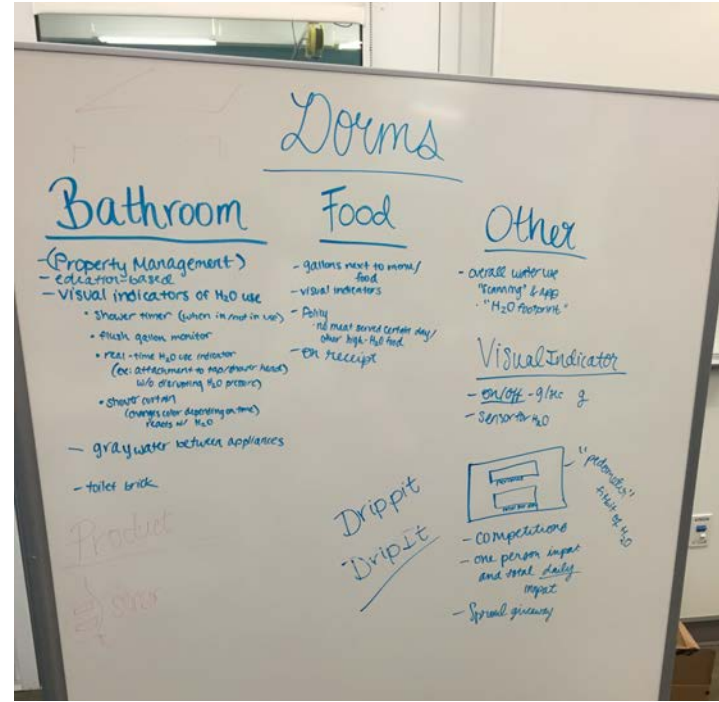 Dorms
Bathroom
-(Property Management)
- edication-based
- visual indicators of H₂O use
• shower timer (when in/not in use)
• flush gallon monitor
• real-time H₂O use indicator
(ex: attachment to tap/shower head)
w/o disrupting H₂O pressure)
• shower curtain
(changes color depending on time)
reacts w/ H₂O
- graywater between appliances
- toilet brick
Product
Food
- gallons next to menu/
food
- visual indicators
- Policy
• no meat served certain day/
other high-H₂O food
- on receipt
Drippit
DripIt
Other
- overall water use
"scanning" & app
• "H₂O footprint"
Visual Indicator
- on/off - g/sec g
- sensor for H₂O
"pedometer"
fitbit of H₂O
- competitions
- one person impat
and total daily
impat
- Sproul giveway